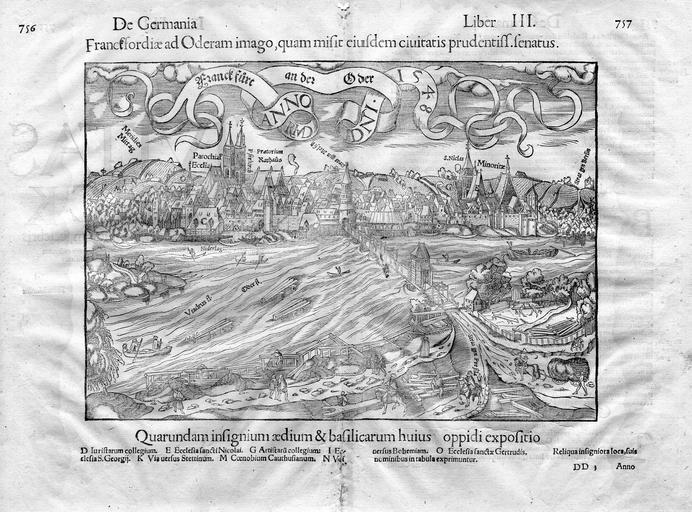 756
De Germania
Liber III.
757
Francfordiæ ad Oderam imago, quam misit eiusdem ciuitatis prudentiss. senatus.
Franckfurt an der Oder 1548
ANNO
DNI
Meridies
Mittag
Parochial
Ecclesia
Pretorium
Rathauß
S. Niclas
Minoritæ
Niderlag
Viadrus fl.
Oder fl.
Quarundam insignium ædium & basilicarum huius oppidi expositio
D Iuristarum collegium. E Ecclesia sancti Nicolai. G Artistarũ collegium: I Ec-
clesia S. Georgij. K Via uersus Stettinum. M Cœnobium Cauthusianum. N Via
uersus Bohemiam. O Ecclesia sanctæ Gertrudis.
nominibus in tabula exprimuntur.
Reliqua insigniora loca, suis
DD 3 Anno